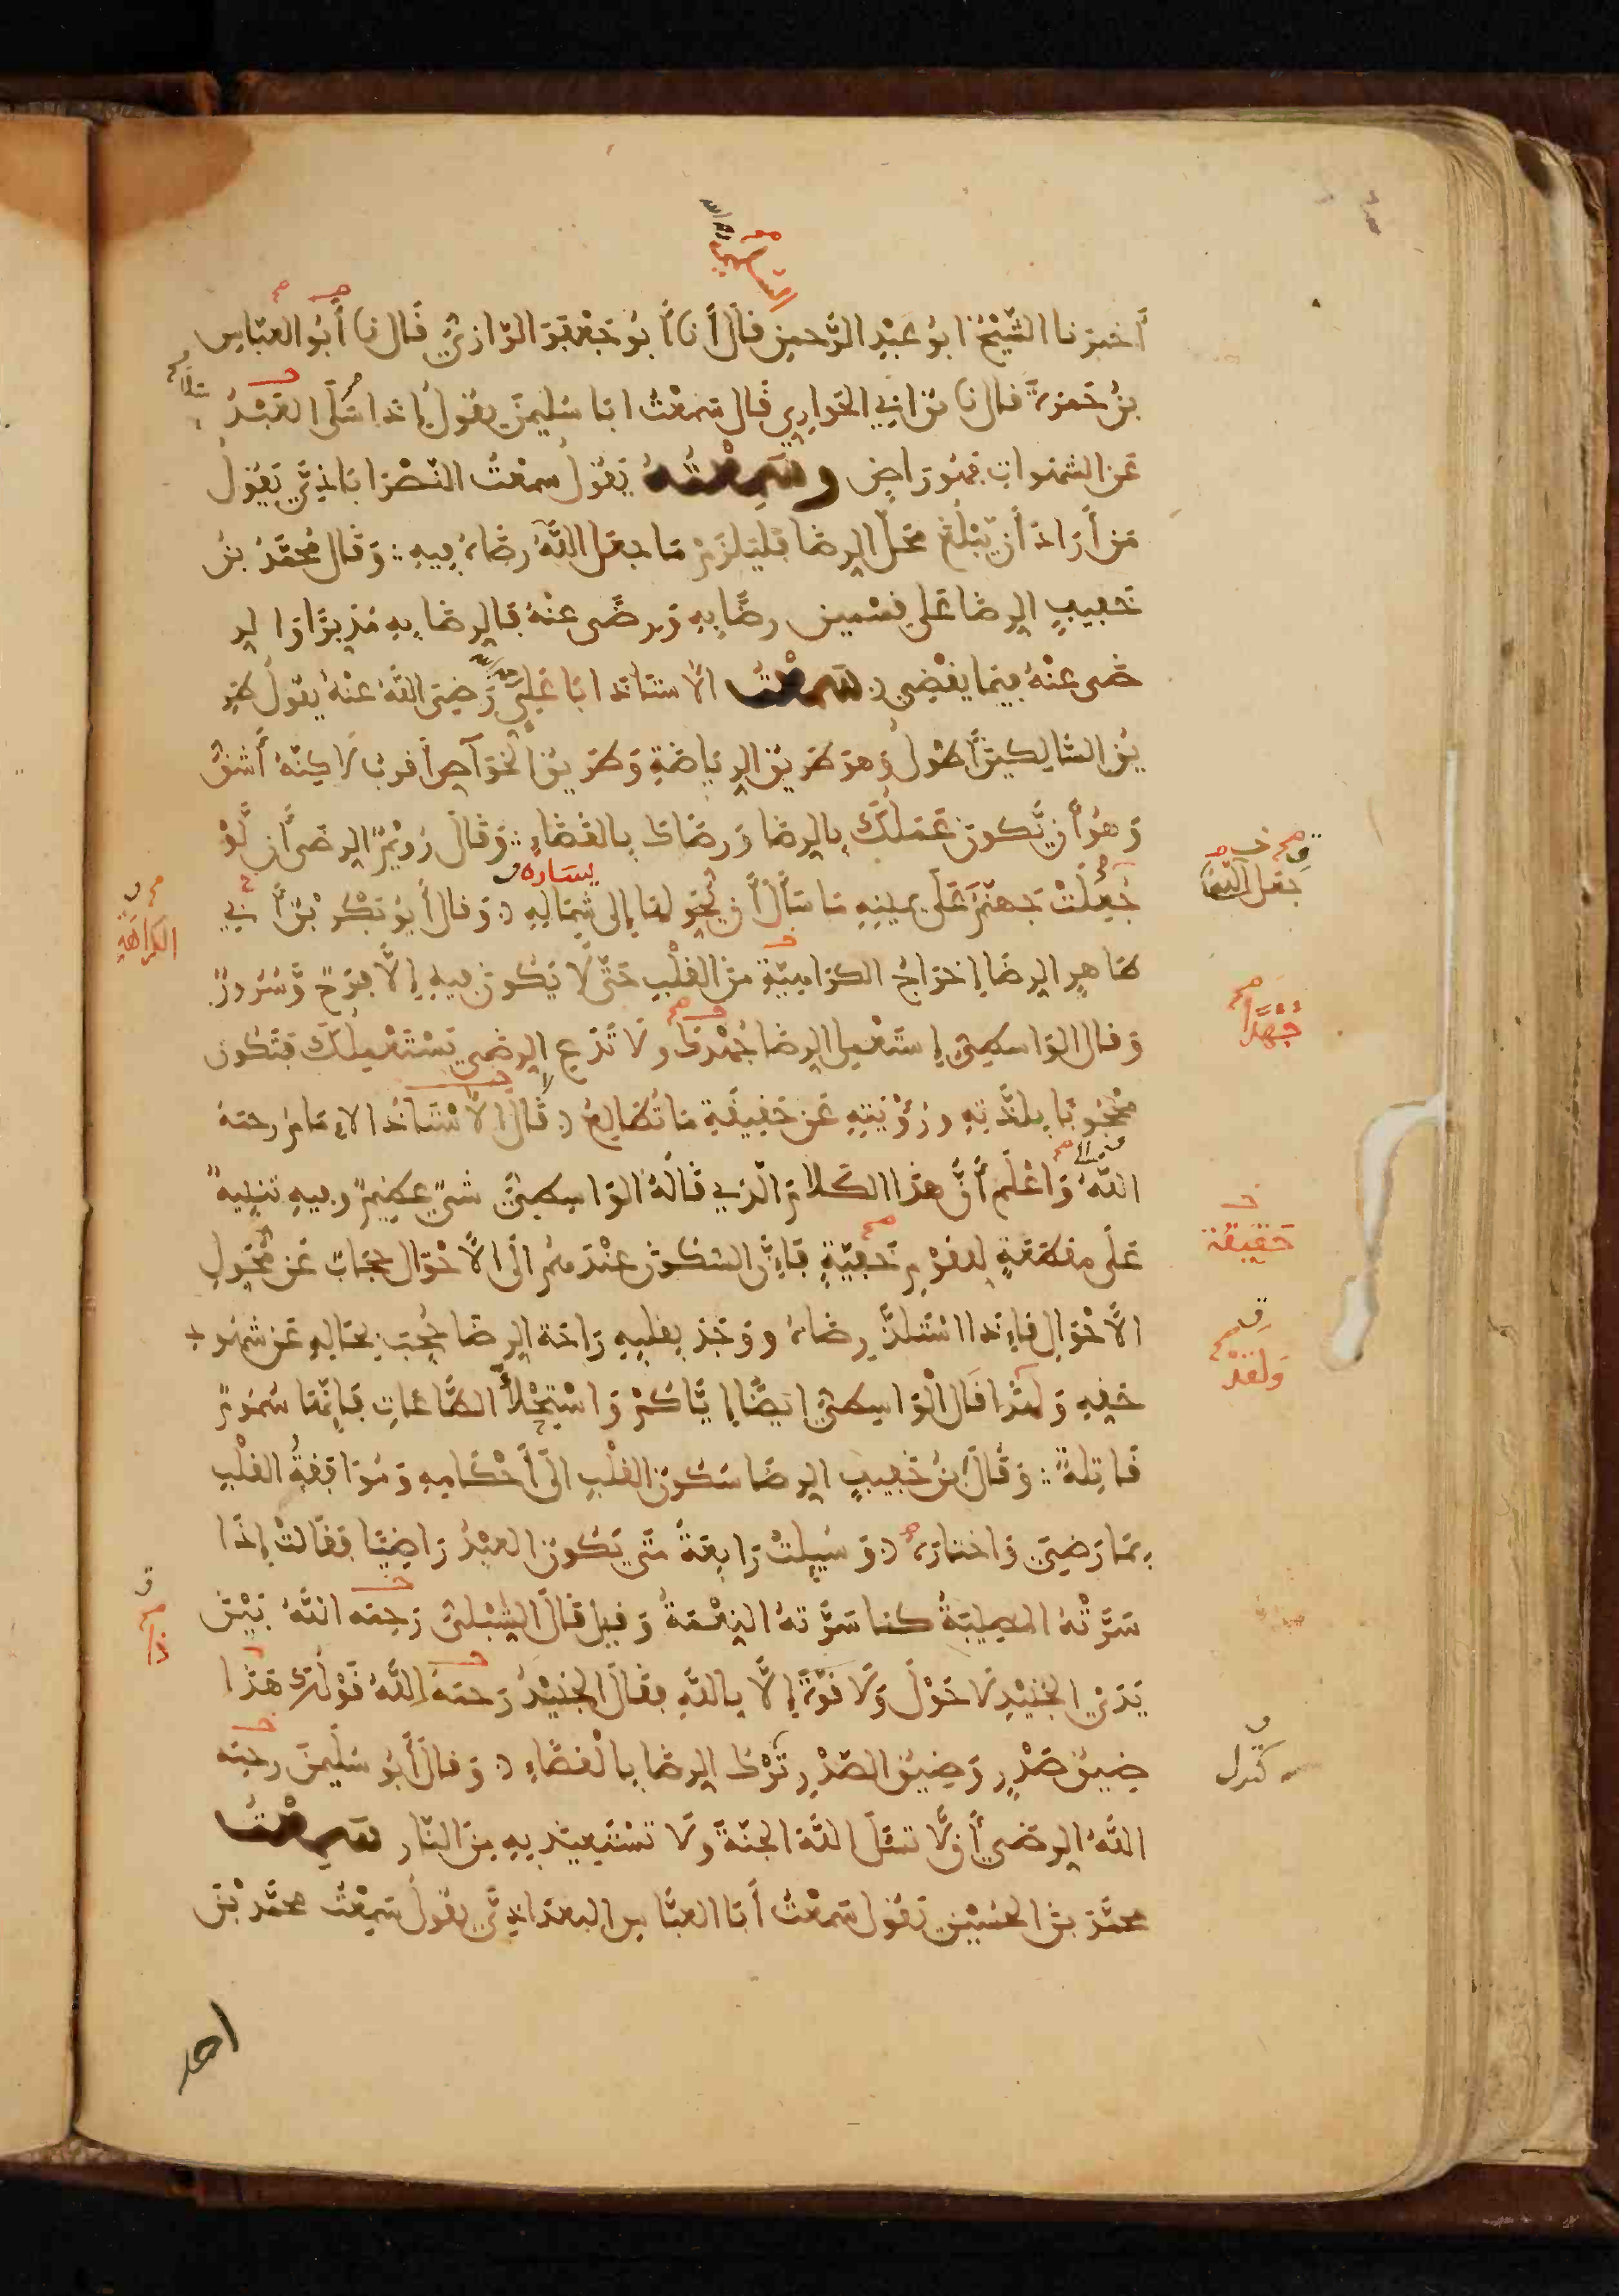 السلمي
أخبرنا الشيخ ابو عبد الرحمن قال أنا أبو جعفر الرازي قال نا أبو العباس
بن حمزة قال نا بن ابي الحواري قال سمعت ابا سليمن يقول إذا سلى العبد
سلا
عن الشهوات فهو راض وسمعته يقول سمعت النصراباذي يقول
من أراد أن يبلغ محل الرضا فليلزم ما جعل الله رضاه فيه وقال محمد بن
خفيف الرضا على قسمين رضا به ورضى عنه فالرضا به مدبرا والر
ضى عنه فيما يقضي سمعت الاستاذ ابا علي رضي الله عنه يقول طر
يق السالكين أطول وهو طريق الرياضة وطريق الخواص أقرب لاكنه أشق
وهو أن يكون عملك بالرضا ورضاك بالقضاء وقال رويم الرضى أن لو
جعل الله
يساره
جعلت جهنم على يمينه ما سأل أن يحولها إلى شماله وقال أبو بكر بن أبي
طاهر الرضا إخراج الكراهية من القلب حتى لا يكون فيه إلا فرح وسرور
الكراهة
وقال الواسطي إستعمل الرضا جهدك ولا تدع الرضى يستعملك فتكون
جهدا
محجوبا بلذته ورؤيته عن حقيقة ما تطالع قال الأستاذ الإمام رحمه
الله واعلم أن هذا الكلام الذي قاله الواسطي شيء عظيم وفيه تنبيه
على مقطعة للقوم خفية فإن السكون عندهم الى الأحوال حجاب عن محول
حقيقة
الأحوال فإذا استلذ رضاه ووجد بقلبه راحة الرضا حجب بحاله عن شهود
حقه ولهذا قال الواسطي ايضا إياكم واستحلاء الطاعات فإنها سموم
ولقد
قاتلة وقال بن خفيف الرضا سكون القلب الى أحكامه وموافقة القلب
بما رضي واختاره وسيلت رابعة متى يكون العبد راضيا فقالت إذا
سرته المصيبة كما سرته النعمة وقيل قال الشبلي رحمه الله بين
ذا
يدي الجنيد لا حول ولا قوة إلا بالله فقال الجنيد رحمه الله قولك هذا
ضيق صدر وضيق الصدر ترك الرضا بالقضاء وقال أبو سليمن رحمه
الله الرضي أن لا تسئل الله الجنة ولا تستعيذ به من النار سمعت
محمد بن الحسين يقول سمعت أبا العباس البغداذي يقول سمعت محمد بن
احمد